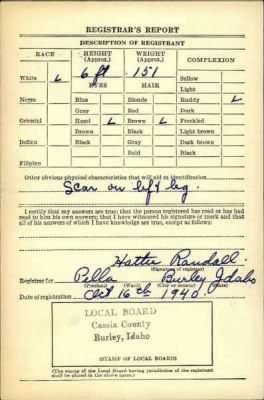 REGISTRAR'S REPORT
DESCRIPTION OF REGISTRANT
RACE HEIGHT (Approx.) WEIGHT (Approx.) COMPLEXION
6 ft 151
White ✓ EYES HAIR Sallow
Light
Negro Blue Blonde Ruddy ✓
Gray Red Dark
Oriental Hazel ✓ Brown ✓ Freckled
Brown Black Light brown
Indian Black Gray Dark brown
Bald Black
Filipino
Other obvious physical characteristics that will aid in identification
Scar on left leg.
I certify that my answers are true; that the person registered has read or has had
read to him his own answers; that I have witnessed his signature or mark and that
all of his answers of which I have knowledge are true, except as follows:
Hattie Randall
(Signature of registrar)
Registrar for Pella Burley Idaho
(Precinct) (Ward) (City or county) (State)
Date of registration Oct 16th 1940
LOCAL BOARD
Cassia County
Burley, Idaho
(STAMP OF LOCAL BOARD)
(The stamp of the Local Board having jurisdiction of the registrant
shall be placed in the above space.)